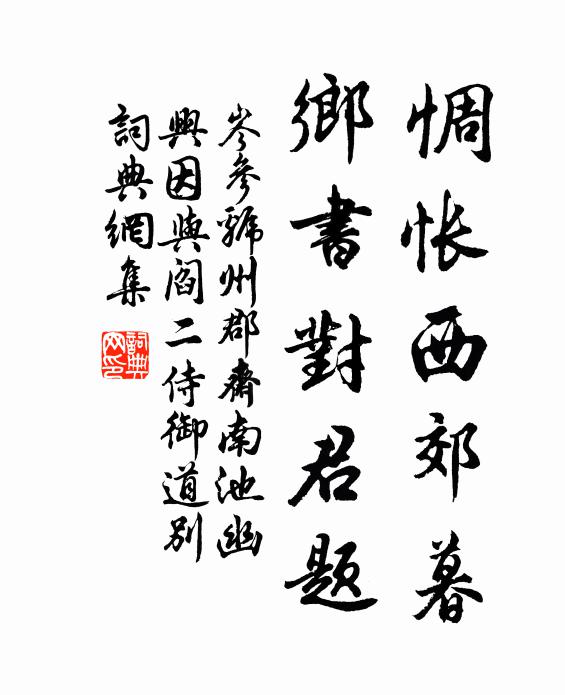 惆怅西郊暮
鄉書對君題
岑參虢州郡齋南池幽
興因與閻二侍御道別
詞典網集
詞典
网印